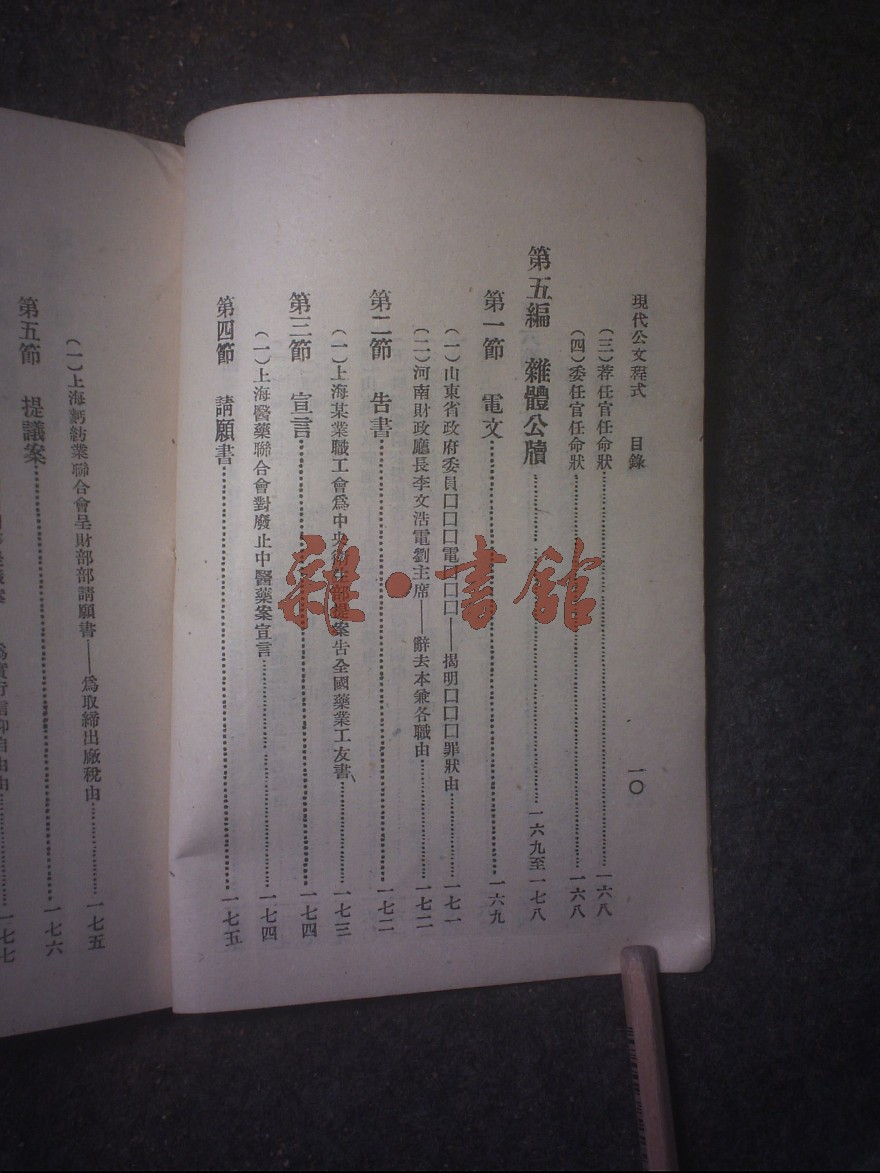 現代公文程式　目錄　一〇
（三）荐任官任命狀……一六八
（四）委任官任命狀……一六八
第五編　雜體公牘……一六九至一七八
第一節　電文……一六九
（一）山東省政府委員囗囗囗電囗囗囗——揭明囗囗囗罪狀由……一七一
（二）河南財政廳長李文浩電劉主席——辭去本兼各職由……一七二
第二節　告書……一七二
（一）上海某業職工會爲中央衛生部提案告全國藥業工友書……一七三
第三節　宣言……一七四
（一）上海醫藥聯合會對廢止中醫藥案宣言……一七四
第四節　請願書……一七五
（一）上海 紡業聯合會呈財部部請願書——爲取締出廠稅由……一七五
第五節　提議案……一七六
議案　爲實行信仰自由由……一七七
雜·書館